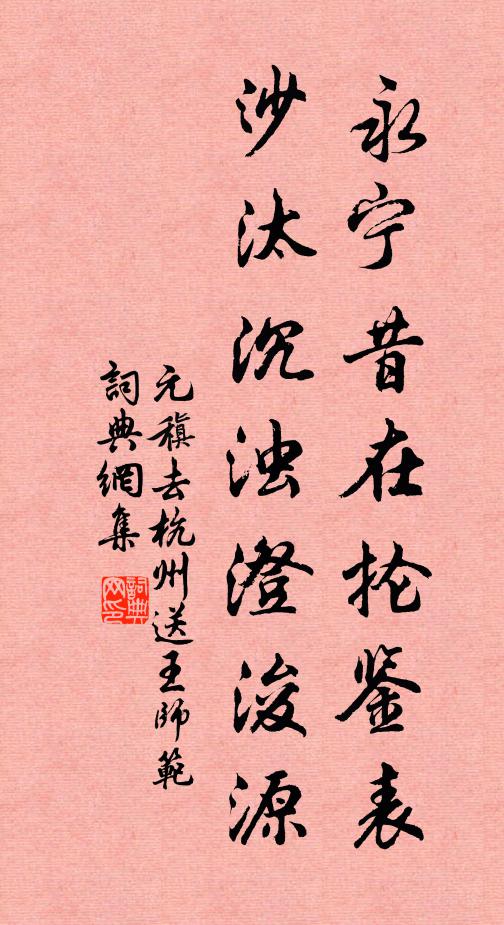 永宁昔在抡鉴表
沙汰沉浊澄浚源
元稹去杭州送王師範
詞典網集
詞典網印